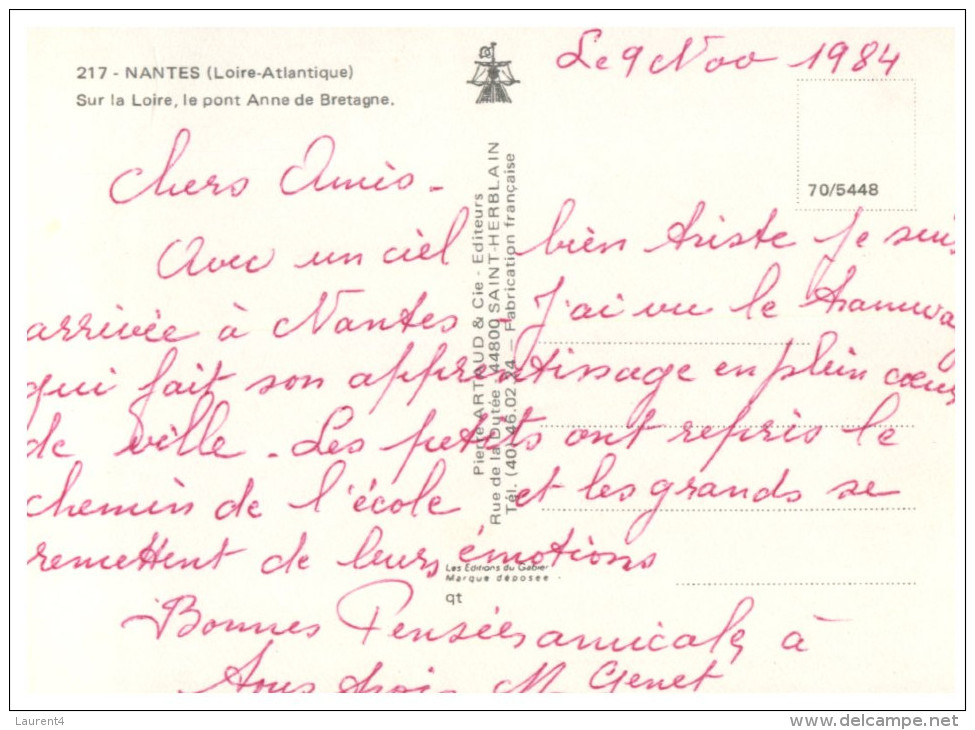 217 - NANTES (Loire-Atlantique)
Sur la Loire, le pont Anne de Bretagne.
Le 9 Nov 1984
70/5448
Chers Amis -
Avec un ciel bien triste je suis
arrivée à Nantes - J'ai vu le tramway
qui fait son apprentissage en plein coeur
de ville - Les petits ont repris le
chemin de l'école et les grands se
remettent de leurs émotions
Bonnes Pensées amicales à
Tous trois M Genet
Pierre ARTAUD & Cie - Editeurs
Rue de la Dutée - 44800 SAINT-HERBLAIN
Tél. (40) 46.02.24 — Fabrication française
Les Editions du Gabier
Marque déposée
qt
Laurent4
www.delcampe.net